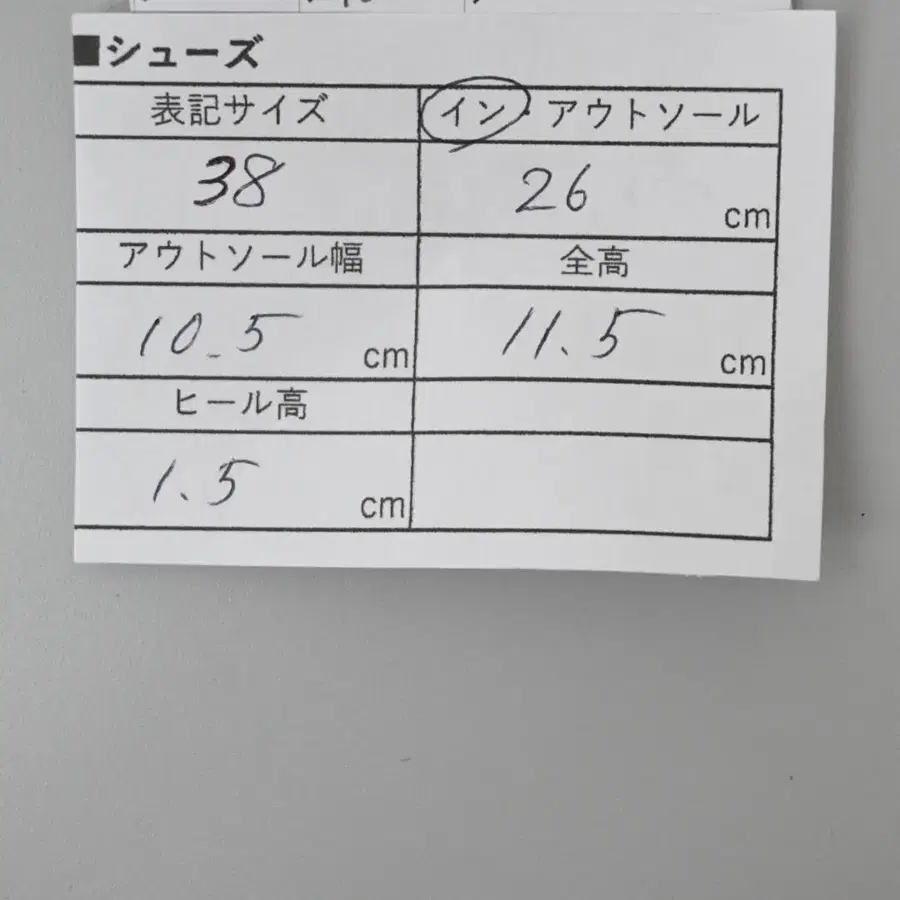 ■シューズ
表記サイズ イン・アウトソール
38 26 cm
アウトソール幅 全高
10.5 cm 11.5 cm
ヒール高
1.5 cm